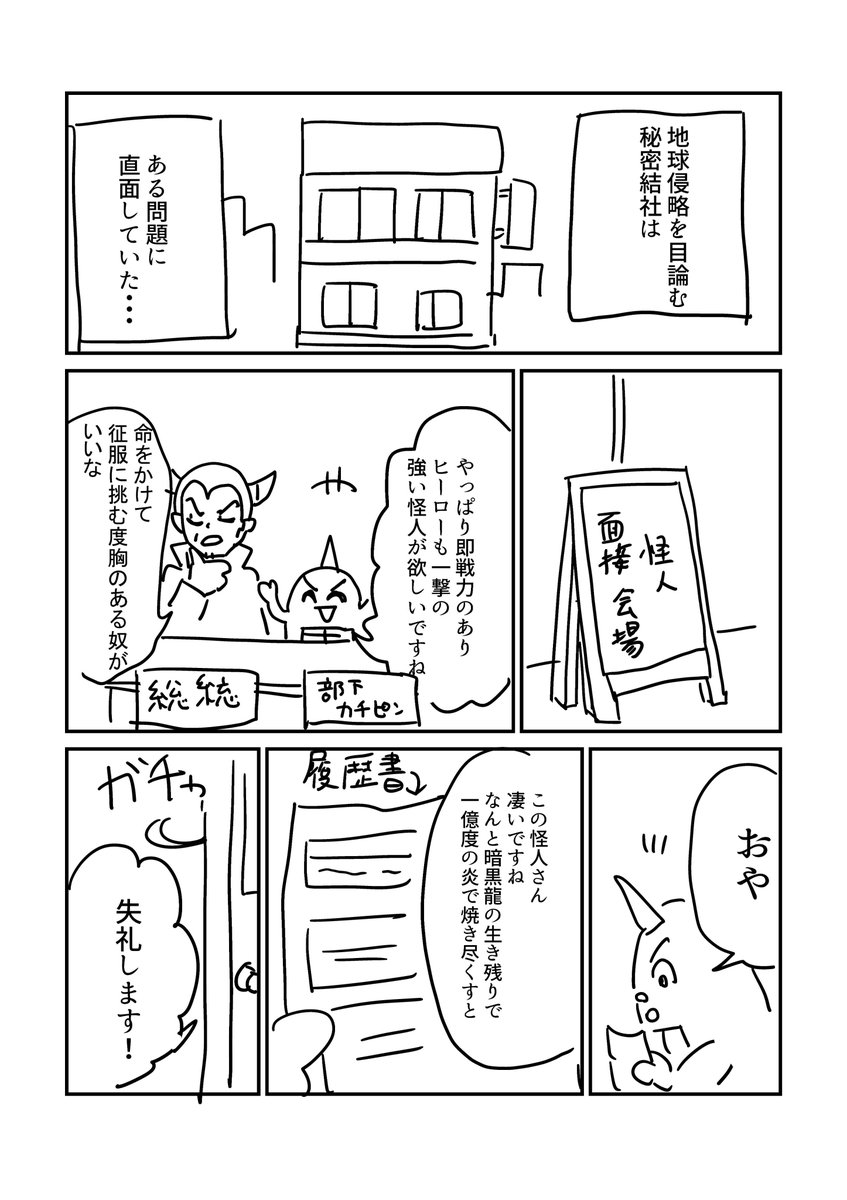 地球侵略を目論む
秘密結社は
ある問題に
直面していた・・・
怪人
面接会場
やっぱり即戦力のあり
ヒーローも一撃の
強い怪人が欲しいですね
命をかけて
征服に挑む度胸のある奴が
いいな
総統
部下
カチピン
おや
この怪人さん
凄いですね
なんと暗黒龍の生き残りで
一億度の炎で焼き尽くすと
履歴書
ガチャ
失礼します！